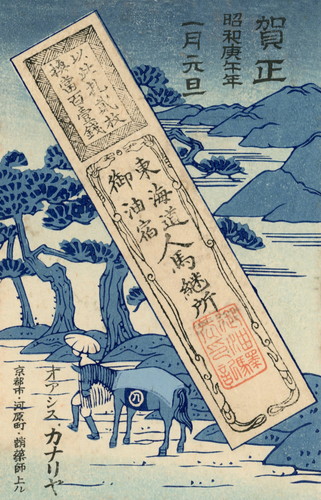 賀正
昭和庚午年
一月元旦
以此札貳枚
換當百壹錢
東海道
御油宿
人馬継所
オアシス・カナリヤ
京都市・河原町・蛸薬師上ル